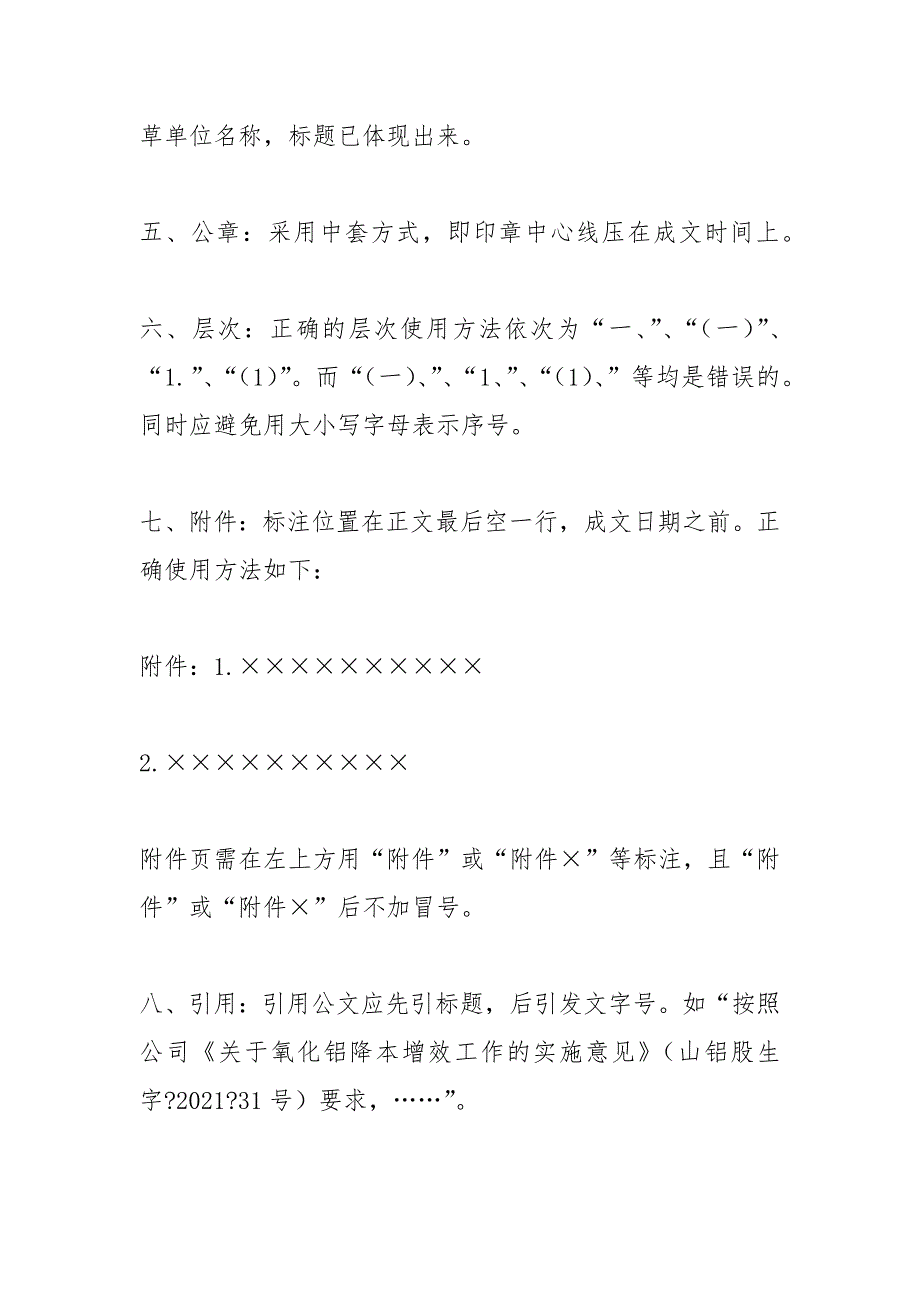 草单位名称，标题已体现出来。
五、公章：采用中套方式，即印章中心线压在成文时间上。
六、层次：正确的层次使用方法依次为“一、”、“（一）”、
“1.”、“（1）”。而“（一）、”、“1、”、“（1）、”等均是错误的。
同时应避免用大小写字母表示序号。
七、附件：标注位置在正文最后空一行，成文日期之前。正
确使用方法如下：
附件：1.××××××××××
2.××××××××××
附件页需在左上方用“附件”或“附件×”等标注，且“附
件”或“附件×”后不加冒号。
八、引用：引用公文应先引标题，后引发文字号。如“按照
公司《关于氧化铝降本增效工作的实施意见》（山铝股生
字?2021?31 号）要求，……”。